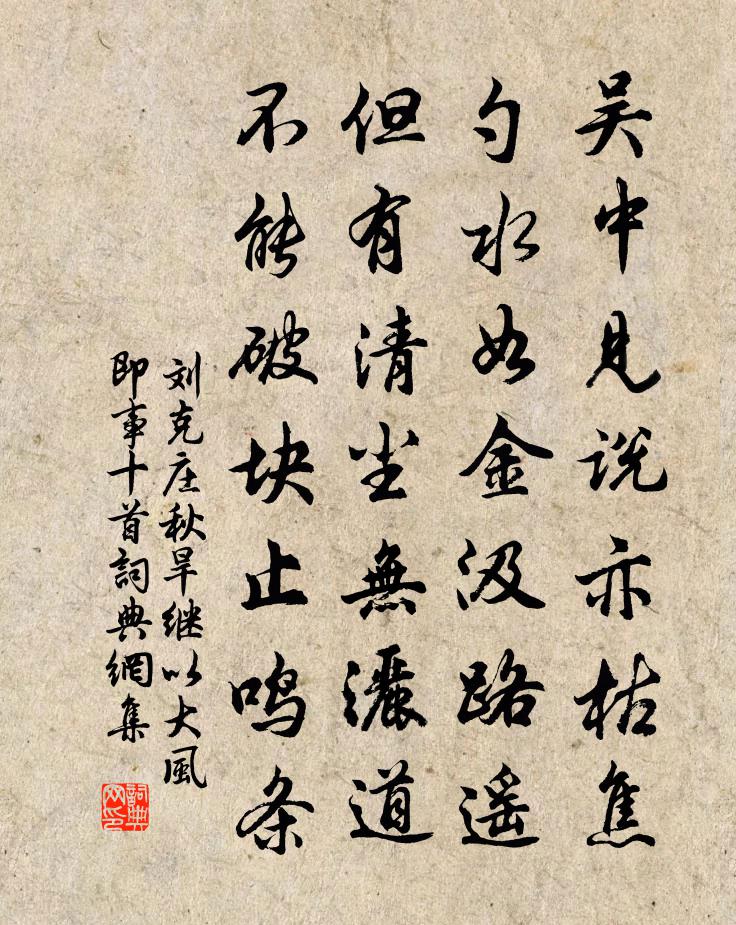 吴中見説亦枯焦
勺水如金汲路遥
但有清尘無灑道
不能破块止鸣条
刘克庄秋旱继以大風
即事十首詞典網集
詞典网印